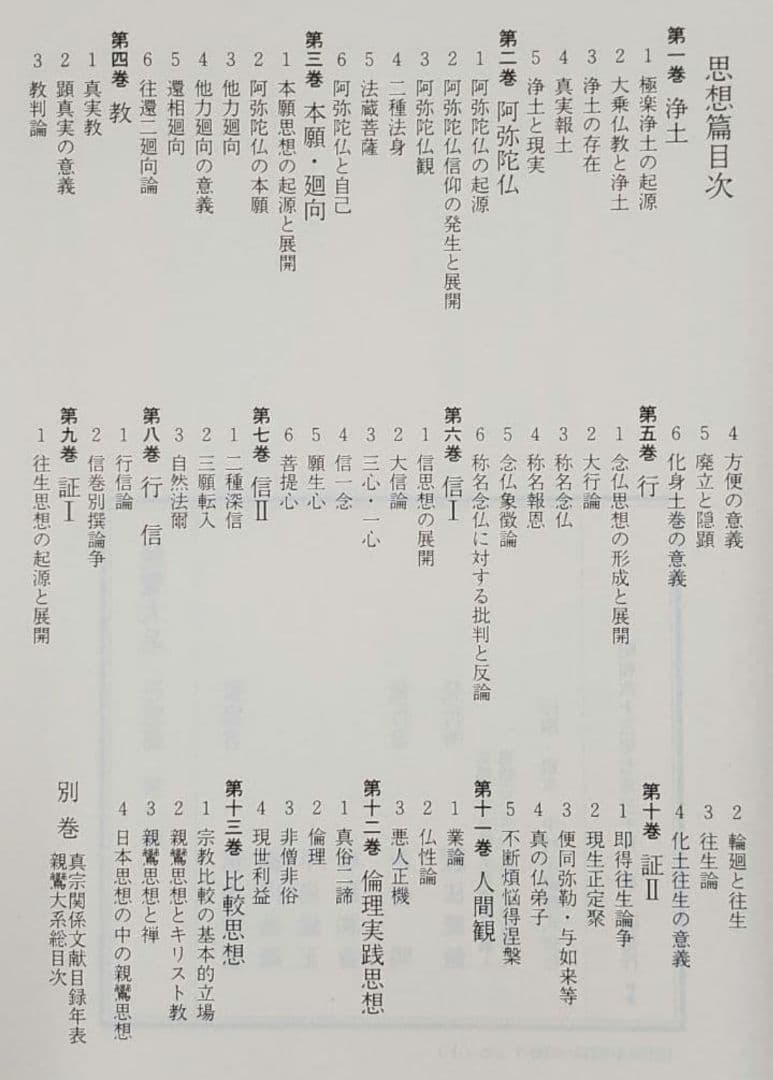 思想篇目次
第一巻 浄土
1 極楽浄土の起源
2 大乗仏教と浄土
3 浄土の存在
4 真実報土
5 浄土と現実
第二巻 阿弥陀仏
1 阿弥陀仏の起源
2 阿弥陀仏信仰の発生と展開
3 阿弥陀仏観
4 二種法身
5 法蔵菩薩
6 阿弥陀仏と自己
第三巻 本願・廻向
1 本願思想の起源と展開
2 阿弥陀仏の本願
3 他力廻向
4 他力廻向の意義
5 還相廻向
6 往還二廻向論
第四巻 教
1 真実教
2 顕真実の意義
3 教判論
4 方便の意義
5 廃立と隠顕
6 化身土巻の意義
第五巻 行
1 念仏思想の形成と展開
2 大行論
3 称名念仏
4 称名報恩
5 念仏象徴論
6 称名念仏に対する批判と反論
第六巻 信Ⅰ
1 信思想の展開
2 大信論
3 三心・一心
4 信一念
5 願生心
6 菩提心
第七巻 信Ⅱ
1 二種深信
2 三願転入
3 自然法爾
第八巻 行 信
1 行信論
2 信巻別撰論争
第九巻 証Ⅰ
1 往生思想の起源と展開
2 輪廻と往生
3 往生論
4 化土往生の意義
第十巻 証Ⅱ
1 即得往生論争
2 現生正定聚
3 便同弥勒・与如来等
4 真の仏弟子
5 不断煩悩得涅槃
第十一巻 人間観
1 業論
2 仏性論
3 悪人正機
第十二巻 倫理実践思想
1 真俗二諦
2 倫理
3 非僧非俗
4 現世利益
第十三巻 比較思想
1 宗教比較の基本的立場
2 親鸞思想とキリスト教
3 親鸞思想と禅
4 日本思想の中の親鸞思想
別巻 真宗関係文献目録年表
親鸞大系総目次